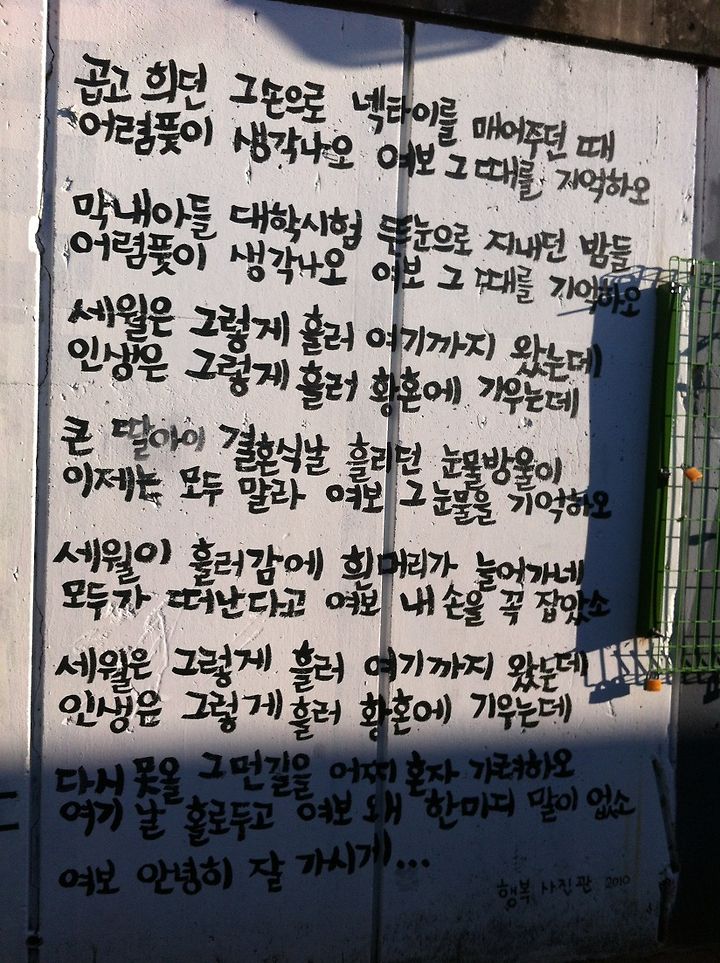 곱고 희던 그손으로 넥타이를 매어주던 때
어렴풋이 생각나오 여보 그때를 기억하오
막내아들 대학시험 뜬눈으로 지내던 밤들
어렴풋이 생각나오 여보 그때를 기억하오
세월은 그렇게 흘러 여기까지 왔는데
인생은 그렇게 흘러 황혼에 기우는데
큰 딸아이 결혼식날 흘리던 눈물방울이
이제는 모두 말라 여보 그눈물을 기억하오
세월이 흘러감에 흰머리가 늘어가네
모두가 떠난다고 여보 내 손을 꼭 잡았소
세월은 그렇게 흘러 여기까지 왔는데
인생은 그렇게 흘러 황혼에 기우는데
다시 못올 그먼길을 어찌 혼자 가려하오
여기 날 홀로두고 여보 왜 한마디 말이 없소
여보 안녕히 잘 가시게...
행복 사진관 2010